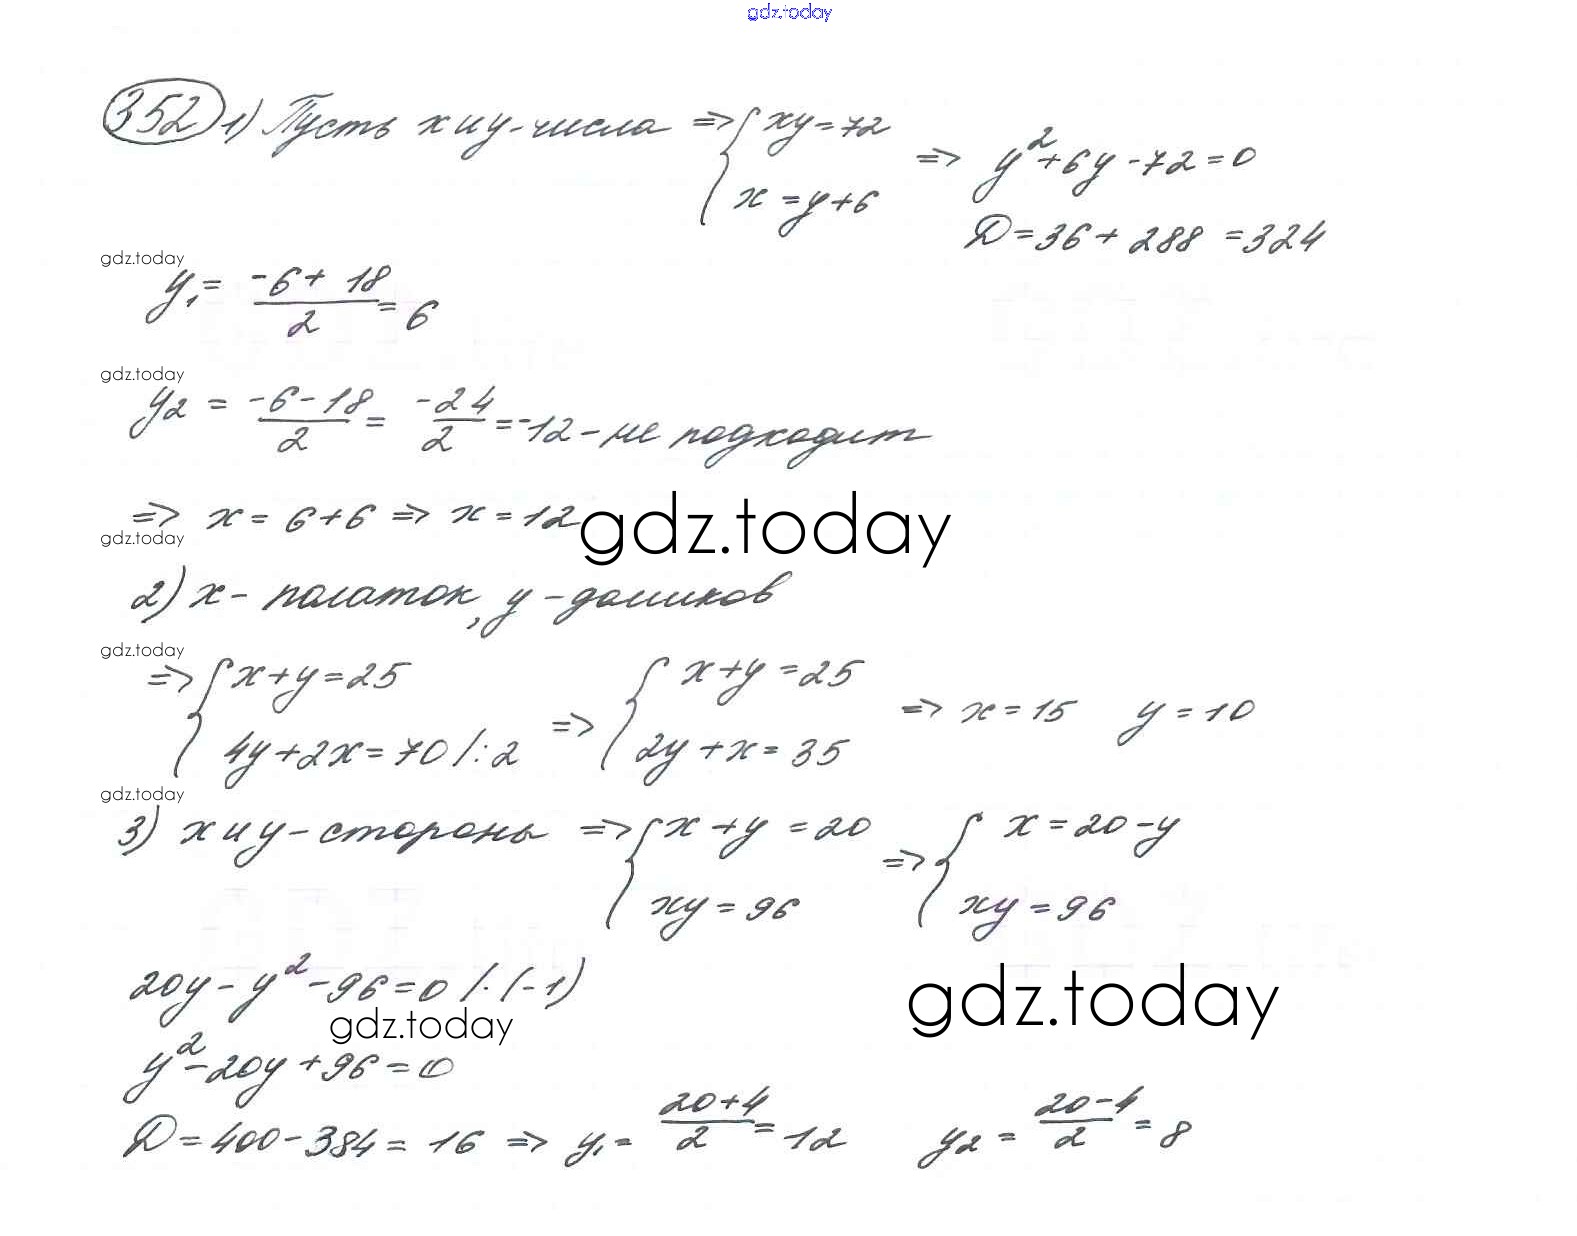 gdz.today
352 1) Пусть x и y - числа => { xy = 72 => y² + 6y - 72 = 0
x = y + 6 D = 36 + 288 = 324
gdz.today
y₁ = (-6 + 18)/2 = 6
gdz.today
y₂ = (-6 - 18)/2 = -24/2 = -12 - не подходит
=> x = 6 + 6 => x = 12
gdz.today
gdz.today
2) x - палаток, y - домиков
gdz.today
=> { x + y = 25 => { x + y = 25 => x = 15 y = 10
4y + 2x = 70 /: 2 2y + x = 35
gdz.today
3) x и y - стороны => { x + y = 20 => { x = 20 - y
xy = 96 xy = 96
20y - y² - 96 = 0 /· (-1)
gdz.today
gdz.today
y² - 20y + 96 = 0
D = 400 - 384 = 16 => y₁ = (20 + 4)/2 = 12 y₂ = (20 - 4)/2 = 8